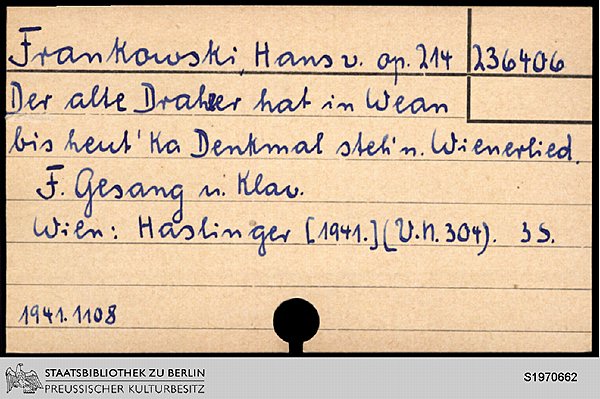 Frankowski, Hans v. op. 214 236406
Der alte Drahrer hat in Wean
bis heut' ka Denkmal steh'n. Wienerlied.
F. Gesang u. Klav.
Wien: Haslinger [1941.] (V.N. 304). 3 S.
1941.1108
STAATSBIBLIOTHEK ZU BERLIN
PREUSSISCHER KULTURBESITZ
S1970662